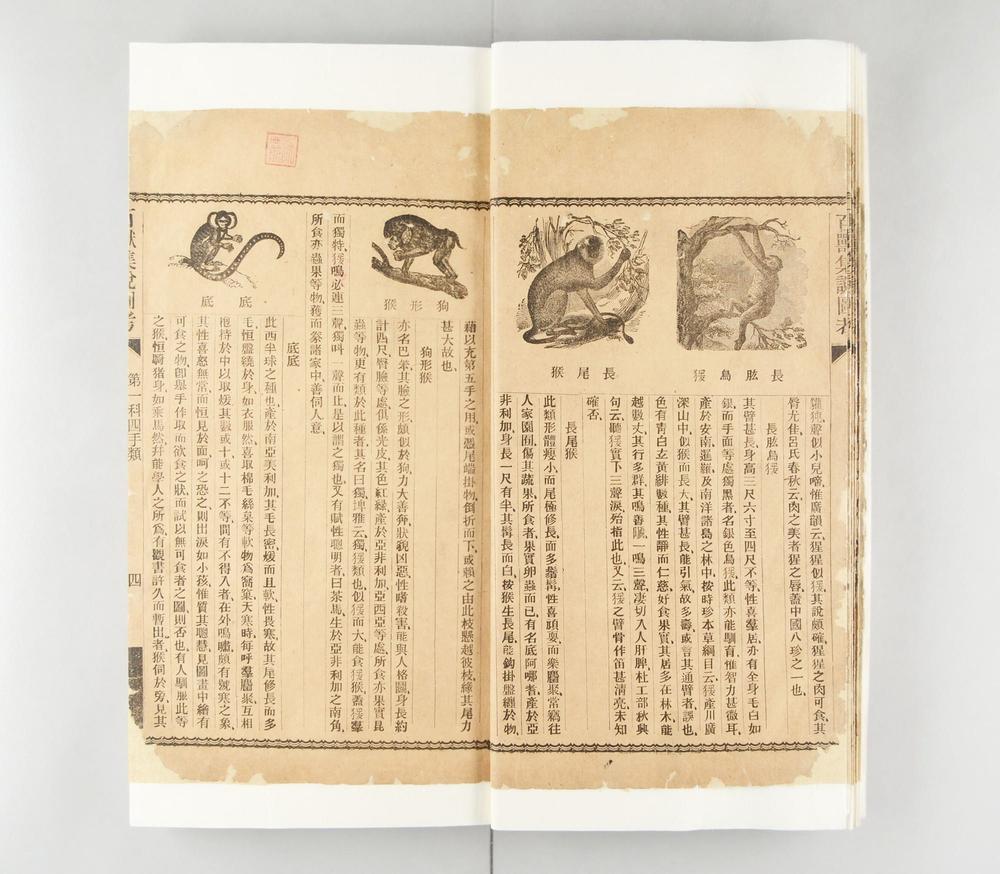 百獸集說圖考
長肱烏猨
長尾猴
獾狍聲似小兒啼惟廣韻云猩猩似猨其說頗確猩猩之肉可食其
脣尤佳呂氏春秋云肉之美者猩之唇蓋中國八珍之一也
長肱烏猨
其臂甚長身高三尺六寸至四尺不等性喜羣居亦有全身毛白如
銀而手面等處獨黑者名銀色烏猨此類亦能馴育惟智力甚微耳
產於安南暹羅及南洋諸島之林中按時珍本草綱目云猨產川廣
深山中似猴而長大其臂甚長能引氣故多壽或言其通臂者誤也
色有青白玄黃緋數種其性靜而仁慈好食果實其居多在林木能
越數丈其行多群其鳴善啼一鳴三聲淒切入人肝脾杜工部秋興
句云聽猨實下三聲淚殆指此也又云猨之臂骨作笛甚清亮未知
確否
長尾猴
此類形體瘦小而尾極修長而多鬍髯性喜頑耍而樂羣聚常竊往
人家園囿傷其蔬果所食者果實卵蟲而已有名底阿哪者產於亞
非利加身長一尺有半其髯長而白按猴生長尾能鈎掛盤纏於物
藉以充第五手之用或憑尾端掛物倒折而下或賴之由此枝懸越彼枝緣其尾力
甚大故也
狗形猴
狗形猴
亦名巴笨其臉之形頗似於狗力大善奔狀貌凶惡性嗜殺害能與人格鬬身長約
計四尺臀臉等處俱係光皮其色紅綠產於亞非利加亞西亞等處所食亦果實昆
蟲等物更有類於此種者其名曰獨埤雅云獨猨類也似猨而大能食猨猴蓋猨羣
而獨特猨鳴必連三聲獨叫一聲而止是以謂之獨也又有賦性聰明者曰茶馬生於亞非利加之南角
所食亦蟲果等物獲而豢諸家中善伺人意
底底
底底
此西半球之種也產於南亞美利加其毛長密煖而且軟性畏寒故其尾修長而多
毛恒盤繞於身如衣服然喜取棉毛絲枲等軟物為窩窠天寒時每呼羣聚互相
抱持於中以取煖其數或十或十二不等間有不得入者在外鳴嘯頗有號寒之象
其性喜怒無常而恒見於面呵之恐之則出淚如小孩惟質其聰慧見圖畫中繪有
可食之物卽舉手作取而欲食之狀而試以無可食者之圖則否也有人馴服此等
之猴恒騎猪身如乘馬然幷能學人之所為有觀書許久而暫出者猴伺於旁見其
百獸集說圖考
第一科四手類
四